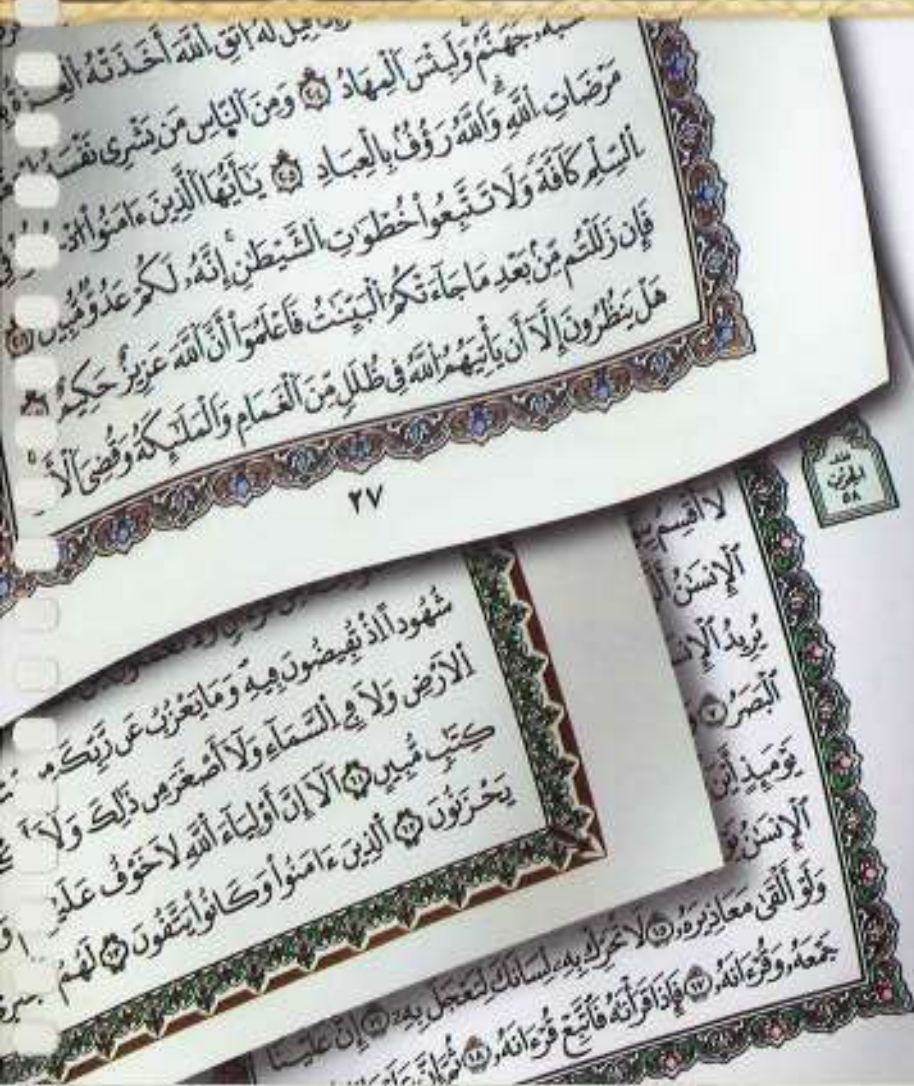 قِيلَ لَهُ اتَّقِ اللَّهَ أَخَذَتْهُ
جَهَنَّمُ وَلَبِئْسَ الْمِهَادُ ۝ وَمِنَ النَّاسِ مَن يَشْرِي نَفْسَهُ
مَرْضَاتِ اللَّهِ وَاللَّهُ رَؤُوفٌ بِالْعِبَادِ ۝ يَا أَيُّهَا الَّذِينَ ءَامَنُوا
السِّلْمِ كَافَّةً وَلَا تَتَّبِعُوا خُطُوَاتِ الشَّيْطَٰنِ إِنَّهُ لَكُمْ عَدُوٌّ مُّبِينٌ
فَإِن زَلَلْتُم مِّنۢ بَعْدِ مَا جَاءَتْكُمُ الْبَيِّنَٰتُ فَاعْلَمُوا أَنَّ اللَّهَ عَزِيزٌ حَكِيمٌ
هَلْ يَنظُرُونَ إِلَّا أَن يَأْتِيَهُمُ اللَّهُ فِي ظُلَلٍ مِّنَ الْغَمَامِ وَالْمَلَٰئِكَةُ وَقُضِيَ
٢٧
الحزب
٥٨
شُهُودًا اِذْ تُفِيضُونَ فِيهِ وَمَا يَعْزُبُ عَن رَّبِّكَ
الْأَرْضِ وَلَا فِي السَّمَاءِ وَلَا أَصْغَرَ مِن ذَٰلِكَ وَلَا
كِتَٰبٍ مُّبِينٍ ۝ أَلَا إِنَّ أَوْلِيَاءَ اللَّهِ لَا خَوْفٌ
يَحْزَنُونَ ۝ الَّذِينَ ءَامَنُوا وَكَانُوا يَتَّقُونَ ۝ لَهُمُ
لَا أُقْسِمُ
الْإِنسَٰنُ
يُرِيدُ
الْبَصَرُ
يَوْمَئِذٍ أَيْنَ
الْإِنسَٰنُ
وَلَوْ أَلْقَىٰ مَعَاذِيرَهُ ۝ لَا تُحَرِّكْ بِهِ لِسَانَكَ لِتَعْجَلَ بِهِ ۝ إِنَّ عَلَيْنَا
جَمْعَهُ وَقُرْءَانَهُ ۝ فَإِذَا قَرَأْنَٰهُ فَاتَّبِعْ قُرْءَانَهُ ۝ ثُمَّ